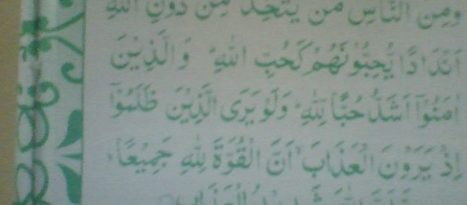 وَمِنَ النَّاسِ مَنْ يَتَّخِذُ مِنْ دُوْنِ اللّٰهِ
اَنْدَادًا يُّحِبُّوْنَهُمْ كَحُبِّ اللّٰهِ ؕ وَالَّذِيْنَ
اٰمَنُوْۤا اَشَدُّ حُبًّا لِّلّٰهِ ؕ وَلَوْ يَرَى الَّذِيْنَ ظَلَمُوْۤا
اِذْ يَرَوْنَ الْعَذَابَ ۙ اَنَّ الْقُوَّةَ لِلّٰهِ جَمِيْعًا ۙ